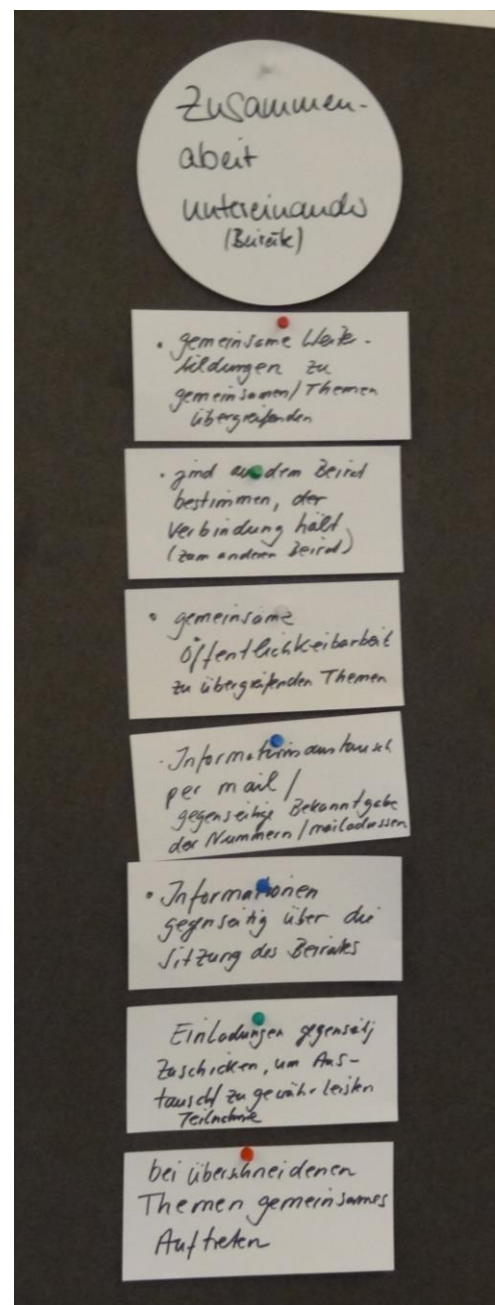 Zusammen-
abeit
untereinander
(Beiräte)
• gemeinsame Weiter-
bildungen zu
gemeinsamen/Themen
übergreifenden
• jmd aus dem Beirat
bestimmen, der
Verbindung hält
(zum anderen Beirat)
• gemeinsame
Öffentlichkeitarbeit
zu übergreifenden Themen
· Informationsaustausch
per mail/
gegenseitige Bekanntgabe
der Nummern/mailadressen
• Informationen
gegenseitig über die
Sitzung des Beirates
Einladungen gegenseitig
zuschicken, um Aus-
tausch/ zu gewährleisten
Teilnahme
bei überschneidenen
Themen gemeinsames
Auftreten